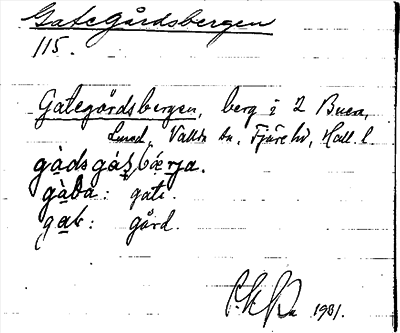 Gategårdsbergen
115.
Gategårdsbergen, berg i 2 Buera,
Lunad, Vallda sn, Fjäre hd, Hall. l.
gàdsgàʂbǽrja.
gàda: gate.
gaʈ: gård.
1931.